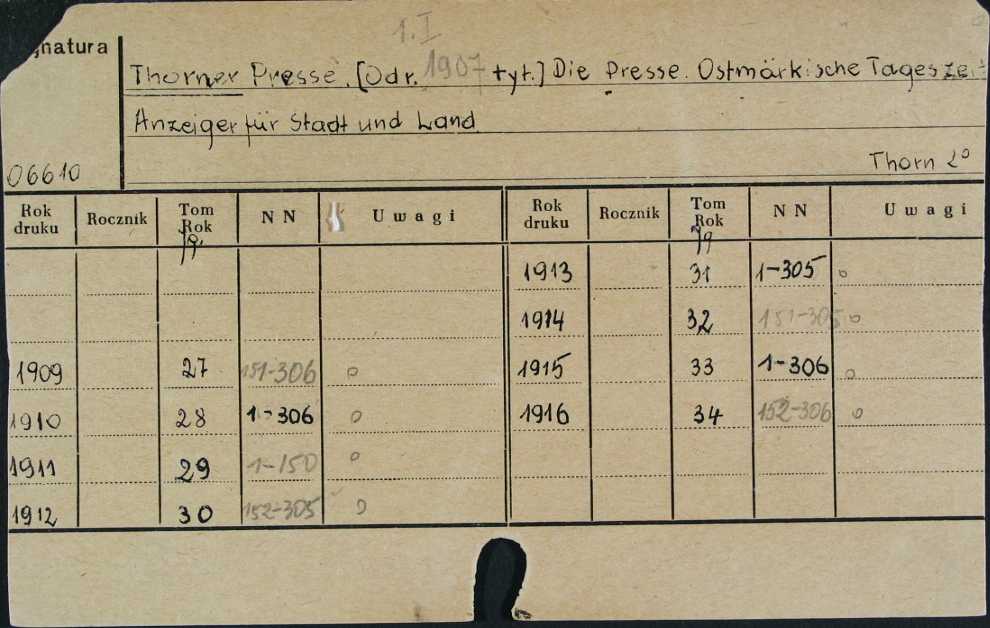 1.I
gnatura
Thorner Presse. [Odr. 1907 tyt.] Die Presse. Ostmärkische Tageszei
Anzeiger für Stadt und Land
06610
Thorn 2°
Rok druku Rocznik Tom Rok NN Uwagi Rok druku Rocznik Tom Rok NN Uwagi
1913 31 1-305 o
1914 32 151-305 o
1909 27 151-306 o 1915 33 1-306 o
1910 28 1-306 o 1916 34 152-306 o
1911 29 1-150 o
1912 30 152-305 o